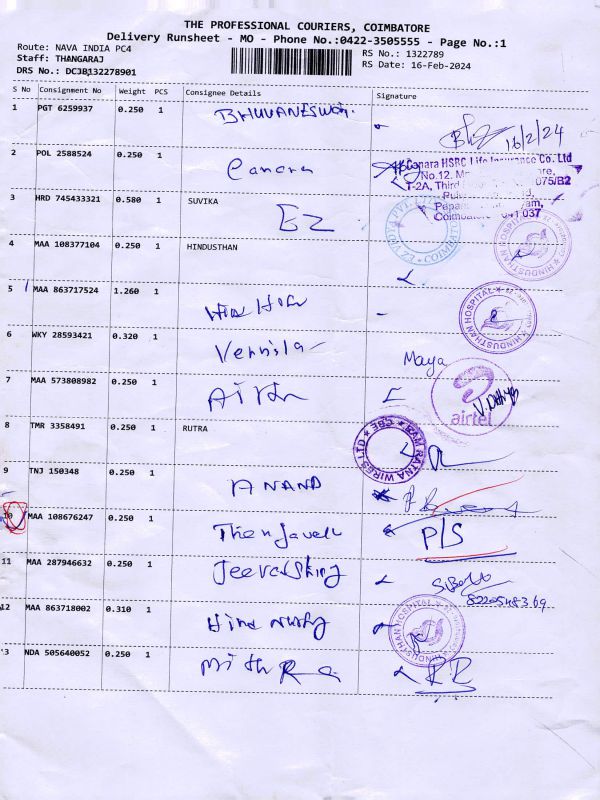 THE PROFESSIONAL COURIERS, COIMBATORE
Delivery Runsheet - MO - Phone No.:0422-3505555 - Page No.:1
Route: NAVA INDIA PC4
Staff: THANGARAJ
DRS No.: DCJB132278901
RS No.: 1322789
RS Date: 16-Feb-2024
S No Consignment No Weight PCS Consignee Details Signature
1 PGT 6259937 0.250 1 BHUVANESWARI 16/2/24
2 POL 2588524 0.250 1 Canara
Canara HSBC Life Insurance Co. Ltd
No.12,
T-2A, Third 075/B2
Coimbatore 641 037
3 HRD 745433321 0.580 1 SUVIKA
EZ
EZ VIDYA PVT. LTD. COIMBATORE
4 MAA 108377104 0.250 1 HINDUSTHAN
HINDUSTHAN HOSPITAL
5 MAA 863717524 1.260 1
HINDUSTHAN HOSPITAL
6 WKY 28593421 0.320 1 Vennila Maya
7 MAA 573808982 0.250 1 Airtel
airtel
8 TMR 3358491 0.250 1 RUTRA
RAM RATNA WIRES LTD CBE
9 TNJ 150348 0.250 1 ANAND
10 MAA 108676247 0.250 1 P/S
11 MAA 287946632 0.250 1
12 MAA 863718002 0.310 1
HINDUSTHAN HOSPITAL
13 NDA 505640052 0.250 1 Mithra RR